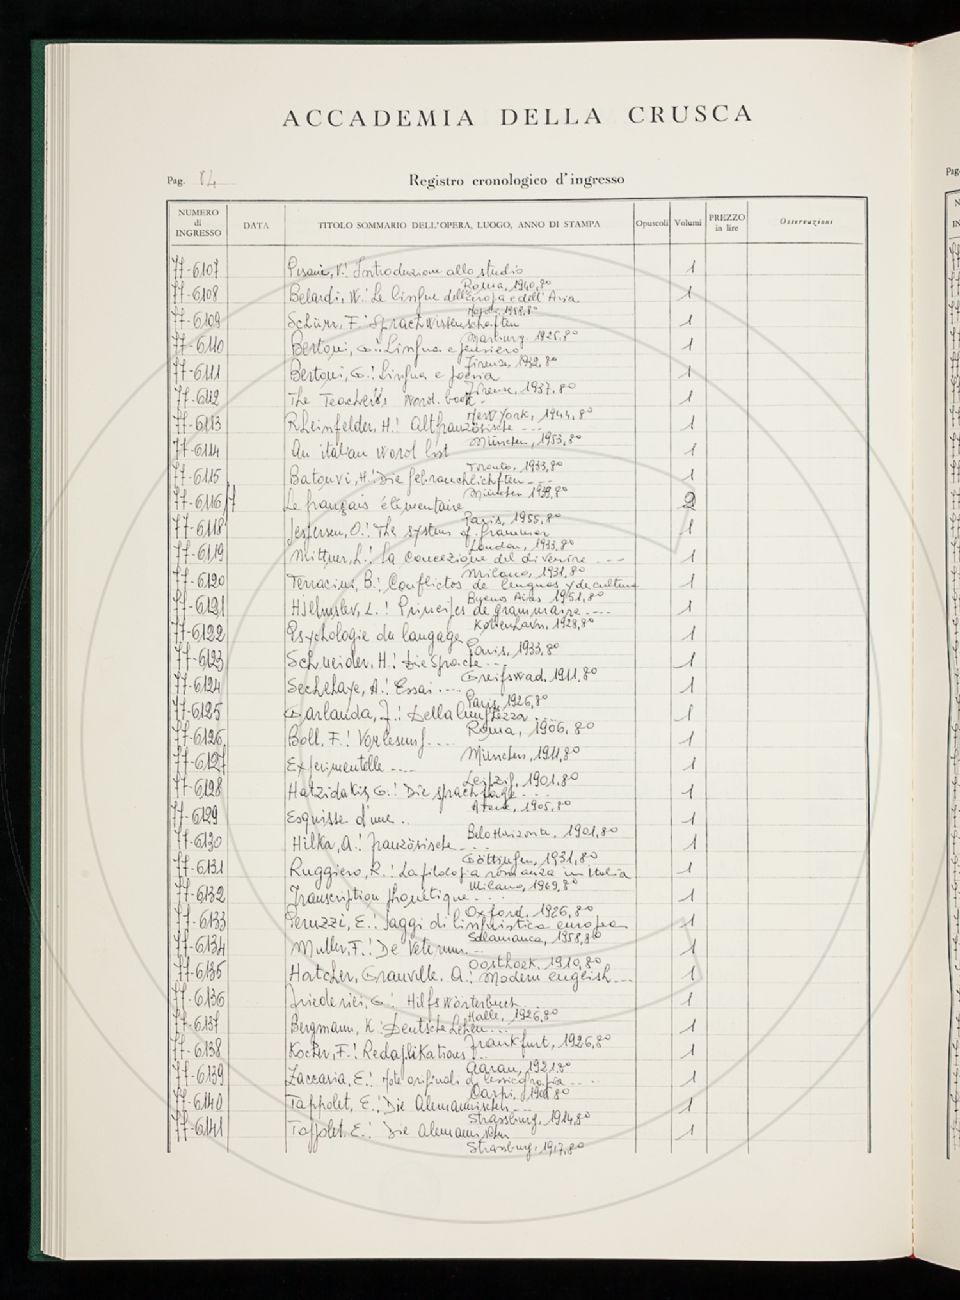 ACCADEMIA DELLA CRUSCA
Pag. 84
Registro cronologico d'ingresso
NUMERO di INGRESSO DATA TITOLO SOMMARIO DELL'OPERA, LUOGO, ANNO DI STAMPA Opuscoli Volumi PREZZO in lire Osservazioni
77-6107 Pisani, V.: Introduzione allo studio 1
Roma, 1940, 8º
77-6108 Belardi, W.: Le lingue dell'europa e dell'Asia 1
1958, 8º
77-6109 Schürr, F.: Sprachwissenschaften 1
Marburg, 1925, 8º
77-6110 Bertoni, G.: Lingua e pensiero 1
Firenze, 1932, 8º
77-6111 Bertoni, G.: Lingua e poesia 1
Firenze, 1937, 8º
77-6112 The Teacher's Word-book 1
New York, 1944, 8º
77-6113 Rheinfelder, H.: Altfranzösische --- 1
München, 1953, 8º
77-6114 An italian word list 1
Toronto, 1933, 8º
77-6115 Die gebrauchlichsten --- 1
München 8º
77-6116/7 Le français élémentaire 2
Paris, 1955, 8º
77-6118 Jespersen, O.: The system of grammar 1
London, 1933, 8º
77-6119 Mittner, L.: La concezione del divenire --- 1
Milano, 1931, 8º
77-6120 Terracini, B.: Conflictos de lenguas y de cultura 1
Buenos Aires 1951, 8º
77-6121 Hjelmslev, L.: Principes de grammaire ---- 1
København, 1928, 8º
77-6122 Psychologie du langage 1
Paris, 1933, 8º
77-6123 Schneider, H.: Die Sprache --- 1
Greifswad, 1911, 8º
77-6124 Sechehaye, A.: Essai .... 1
Paris, 1926, 8º
77-6125 Garlanda, F.: Della lunghezza ... 1
Roma, 1906, 8º
77-6126 Boll, F.: Vorlesung .... 1
München, 1911, 8º
77-6127 Experimentelle .... 1
Leipzig, 1901, 8º
77-6128 Hatzidakis, G.: Die sprachfrage ... 1
Atene, 1905, 8º
77-6129 Esquisse d'une .. 1
Belo Horizonte, 1901, 8º
77-6130 Hilka, A.: Französische ... 1
Göttingen, 1931, 8º
77-6131 Ruggiero, R.: La filologia romanza in Italia 1
Milano, 1969, 8º
77-6132 Transcription phonétique ... 1
Oxford, 1926, 8º
77-6133 Peruzzi, E.: Saggi di linguistica europea 1
Salamanca, 1958, 8º
77-6134 Muller, F.: De Veterum ... 1
Oosthoek, 1910, 8º
77-6135 Hatcher, Granville, A.: Modern english ... 1
77-6136 Friederici, G.: Hilfswörterbuch ... 1
Halle, 1926, 8º
77-6137 Bergmann, K.: Deutsche Leben ... 1
Frankfurt, 1926, 8º
77-6138 Kocher, F.: Reduplikations .. 1
Aarau, 1921, 8º
77-6139 Zaccaria, E.: Note originali di lessicografia .... 1
Carpi, 8º
77-6140 Tappolet, E.: Die Alemannischen ... 1
Strassburg, 1914, 8º
77-6141 Tappolet, E.: Die Alemannischen 1
Strassburg, 1917, 8º